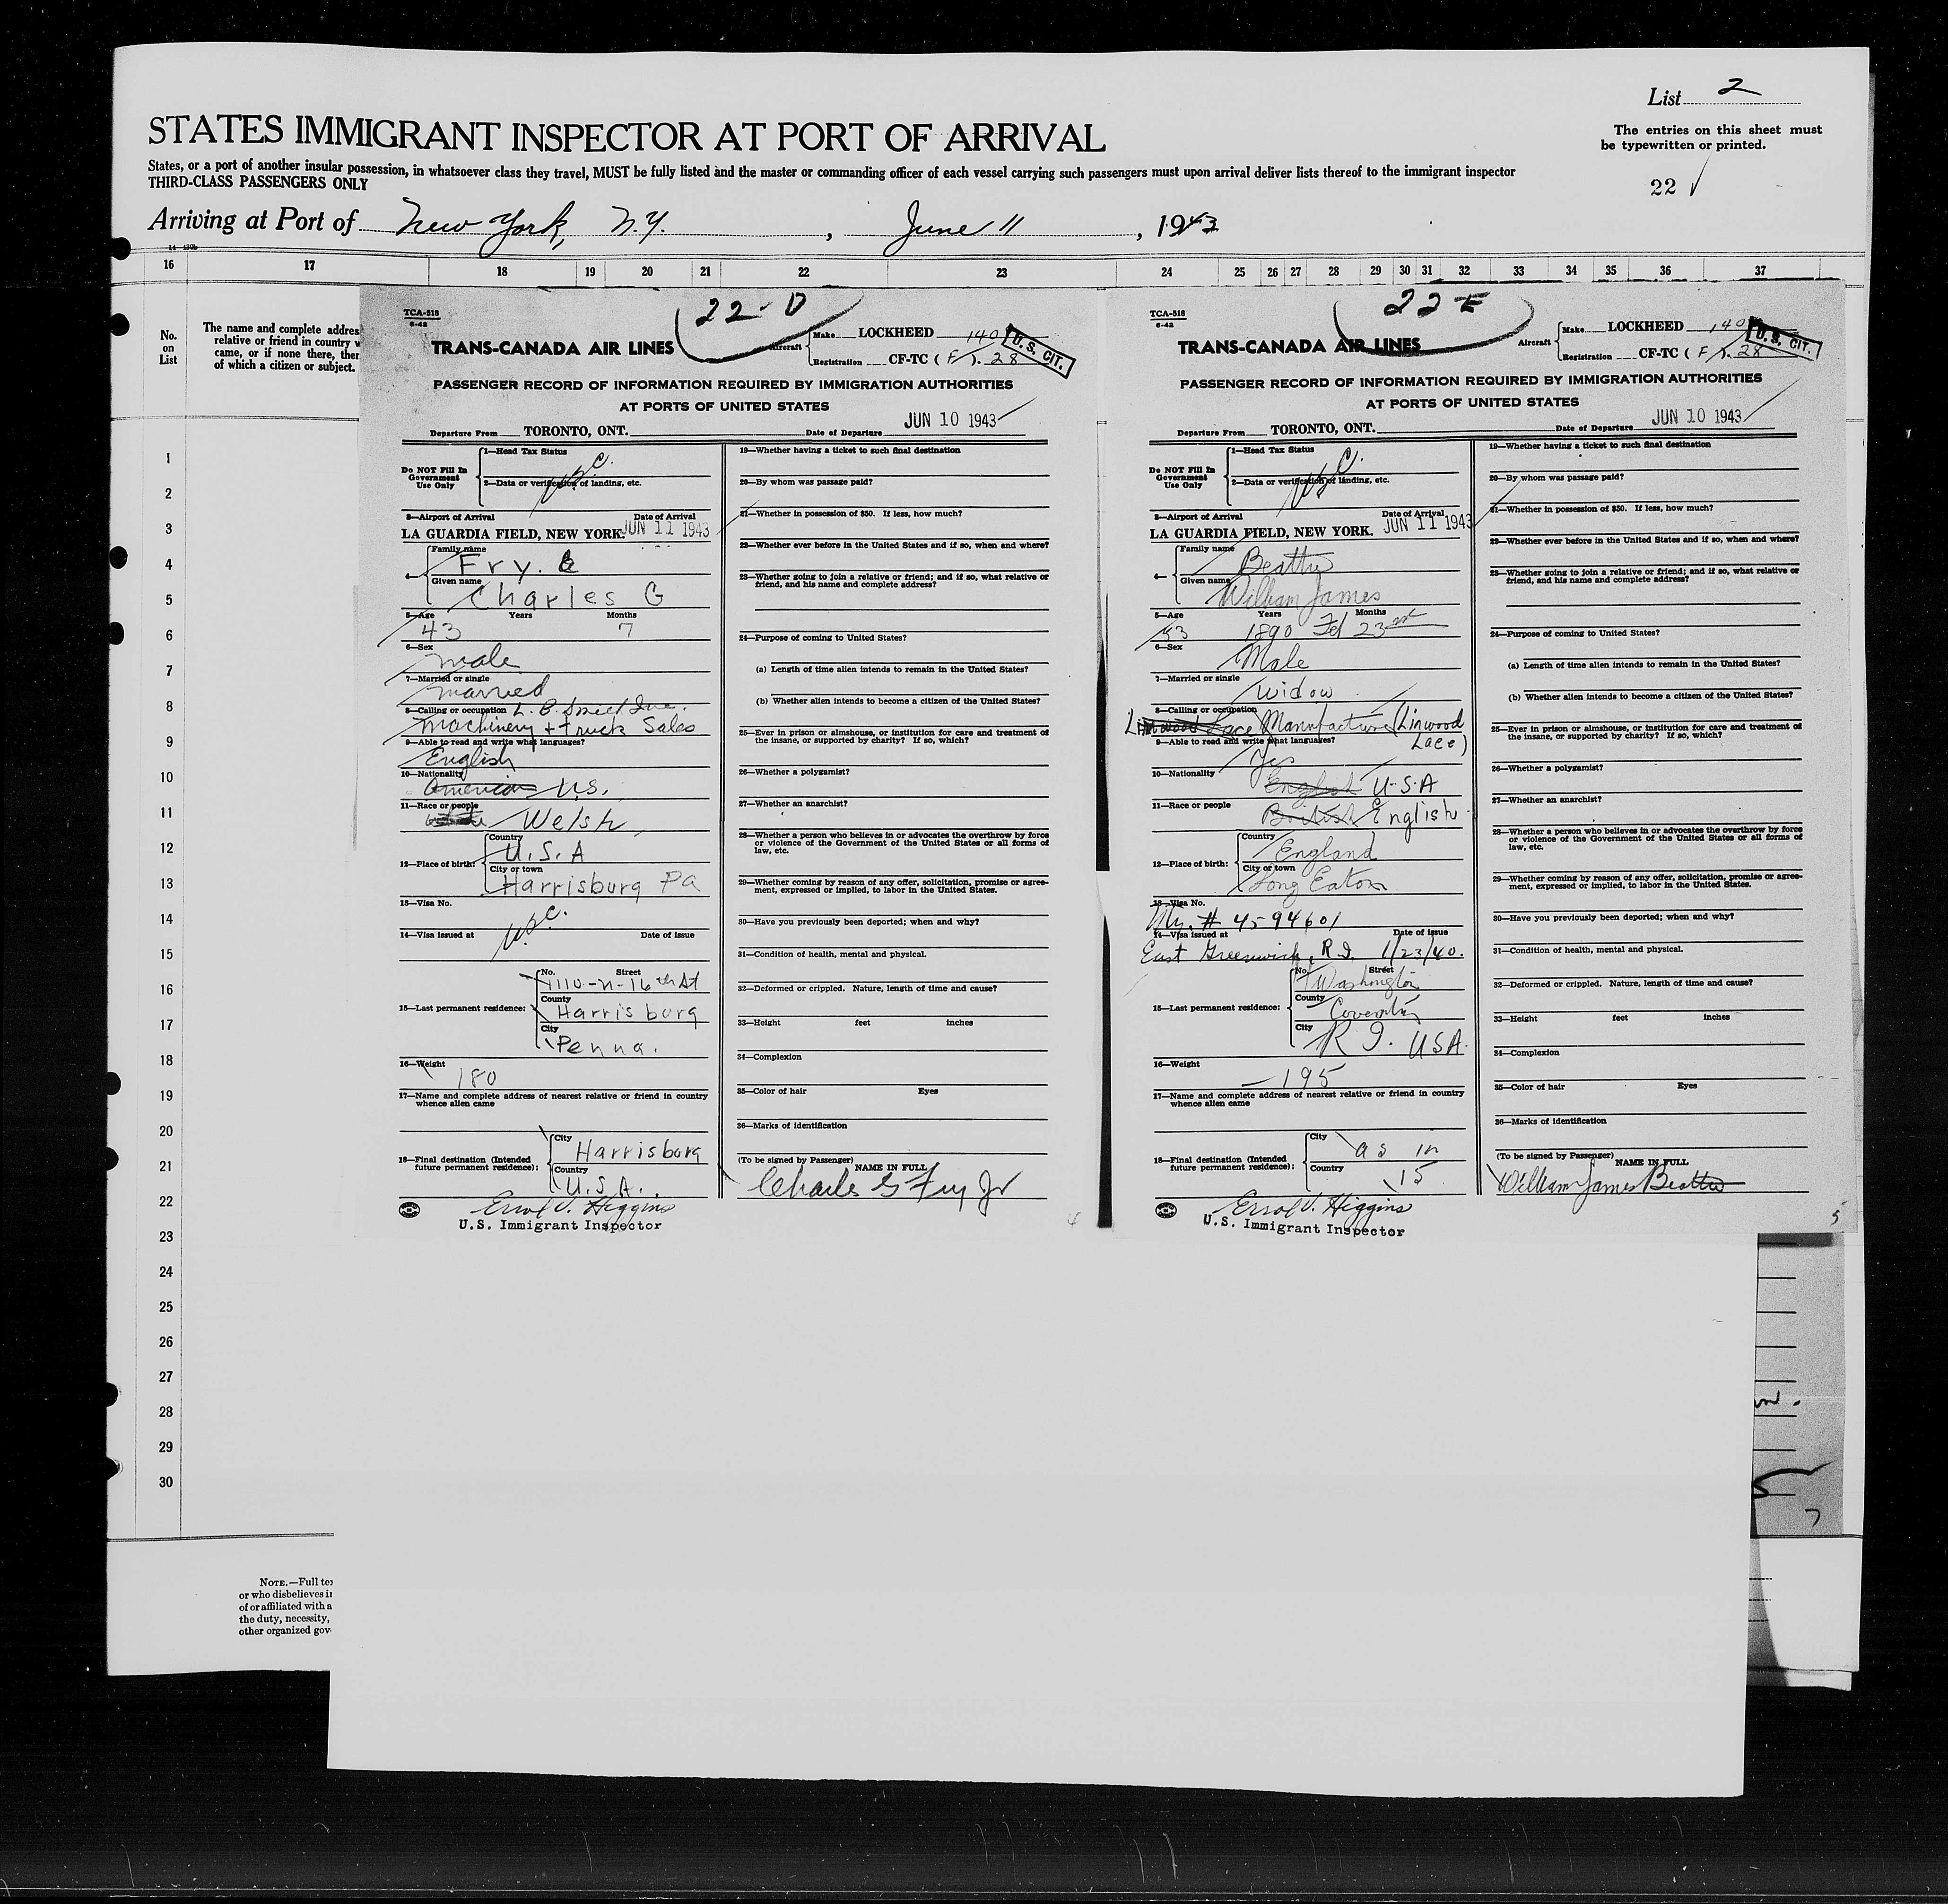 List 2
STATES IMMIGRANT INSPECTOR AT PORT OF ARRIVAL
The entries on this sheet must
be typewritten or printed.
States, or a port of another insular possession, in whatsoever class they travel, MUST be fully listed and the master or commanding officer of each vessel carrying such passengers must upon arrival deliver lists thereof to the immigrant inspector
THIRD-CLASS PASSENGERS ONLY
22
Arriving at Port of New York, N.Y., June 11, 1943
16 17 18 19 20 21 22 23 24 25 26 27 28 29 30 31 32 33 34 35 36 37
No.
on
List
The name and complete addres
relative or friend in country w
came, or if none there, then
of which a citizen or subject.
1
2
3
4
5
6
7
8
9
10
11
12
13
14
15
16
17
18
19
20
21
22
23
24
25
26
27
28
29
30
NOTE.—Full te
or who disbelieves in
of or affiliated with a
the duty, necessity,
other organized gov
TCA-518
6-42
22-D
TRANS-CANADA AIR LINES
Aircraft
Make LOCKHEED 140
Registration CF-TC (F). 28
U.S. CIT.
PASSENGER RECORD OF INFORMATION REQUIRED BY IMMIGRATION AUTHORITIES
AT PORTS OF UNITED STATES
JUN 10 1943
Departure From TORONTO, ONT. Date of Departure
Do NOT Fill In
Government
Use Only
1—Head Tax Status
2—Data or verification of landing, etc.
USC
3—Airport of Arrival Date of Arrival
LA GUARDIA FIELD, NEW YORK. JUN 11 1943
4—
Family name
Fry.
Given name
Charles G
5—Age Years Months
43 7
6—Sex
male
7—Married or single
married
8—Calling or occupation L. B. Inc.
Machinery + truck Sales
9—Able to read and write what languages?
English
10—Nationality
American U.S.
11—Race or people
Welsh
12—Place of birth:
Country
U.S.A
City or town
Harrisburg Pa
13—Visa No.
USC.
14—Visa issued at Date of issue
15—Last permanent residence:
No. Street
1110-N-16th St
County
Harrisburg
City
Penna.
16—Weight
180
17—Name and complete address of nearest relative or friend in country
whence alien came
18—Final destination (Intended
future permanent residence):
City
Harrisburg
Country
U.S.A.
Errol V. Higgins
U.S. Immigrant Inspector
19—Whether having a ticket to such final destination
20—By whom was passage paid?
21—Whether in possession of $50. If less, how much?
22—Whether ever before in the United States and if so, when and where?
23—Whether going to join a relative or friend; and if so, what relative or
friend, and his name and complete address?
24—Purpose of coming to United States?
(a) Length of time alien intends to remain in the United States?
(b) Whether alien intends to become a citizen of the United States?
25—Ever in prison or almshouse, or institution for care and treatment of
the insane, or supported by charity? If so, which?
26—Whether a polygamist?
27—Whether an anarchist?
28—Whether a person who believes in or advocates the overthrow by force
or violence of the Government of the United States or all forms of
law, etc.
29—Whether coming by reason of any offer, solicitation, promise or agree-
ment, expressed or implied, to labor in the United States.
30—Have you previously been deported; when and why?
31—Condition of health, mental and physical.
32—Deformed or crippled. Nature, length of time and cause?
33—Height feet inches
34—Complexion
35—Color of hair Eyes
36—Marks of identification
(To be signed by Passenger) NAME IN FULL
Charles G Fry Jr
4
TCA-518
6-42
22E
TRANS-CANADA AIR LINES
Aircraft
Make LOCKHEED 140
Registration CF-TC (F). 28
U.S. CIT.
PASSENGER RECORD OF INFORMATION REQUIRED BY IMMIGRATION AUTHORITIES
AT PORTS OF UNITED STATES
JUN 10 1943
Departure From TORONTO, ONT. Date of Departure
Do NOT Fill In
Government
Use Only
1—Head Tax Status
2—Data or verification of landing, etc.
USC.
3—Airport of Arrival Date of Arrival
LA GUARDIA FIELD, NEW YORK. JUN 11 1943
4—
Family name
Beattie
Given name
William James
5—Age Years Months
53 1890 Feb 23
6—Sex
Male
7—Married or single
Widow
8—Calling or occupation
Linwood Lace Manufacture (Linwood
Lace)
9—Able to read and write what languages?
Yes
10—Nationality
English U-S-A
11—Race or people
British English
12—Place of birth:
Country
England
City or town
Long Eaton
13—Visa No.
# 4594601
14—Visa issued at Date of issue
East Greenwich, R.I. 1/23/40.
15—Last permanent residence:
No. Street
Washington
County
Coventry
City
R I. USA.
16—Weight
195
17—Name and complete address of nearest relative or friend in country
whence alien came
18—Final destination (Intended
future permanent residence):
City
as in
Country
15
Errol V. Higgins
U.S. Immigrant Inspector
19—Whether having a ticket to such final destination
20—By whom was passage paid?
21—Whether in possession of $50. If less, how much?
22—Whether ever before in the United States and if so, when and where?
23—Whether going to join a relative or friend; and if so, what relative or
friend, and his name and complete address?
24—Purpose of coming to United States?
(a) Length of time alien intends to remain in the United States?
(b) Whether alien intends to become a citizen of the United States?
25—Ever in prison or almshouse, or institution for care and treatment of
the insane, or supported by charity? If so, which?
26—Whether a polygamist?
27—Whether an anarchist?
28—Whether a person who believes in or advocates the overthrow by force
or violence of the Government of the United States or all forms of
law, etc.
29—Whether coming by reason of any offer, solicitation, promise or agree-
ment, expressed or implied, to labor in the United States.
30—Have you previously been deported; when and why?
31—Condition of health, mental and physical.
32—Deformed or crippled. Nature, length of time and cause?
33—Height feet inches
34—Complexion
35—Color of hair Eyes
36—Marks of identification
(To be signed by Passenger) NAME IN FULL
William James Beattie
5
7